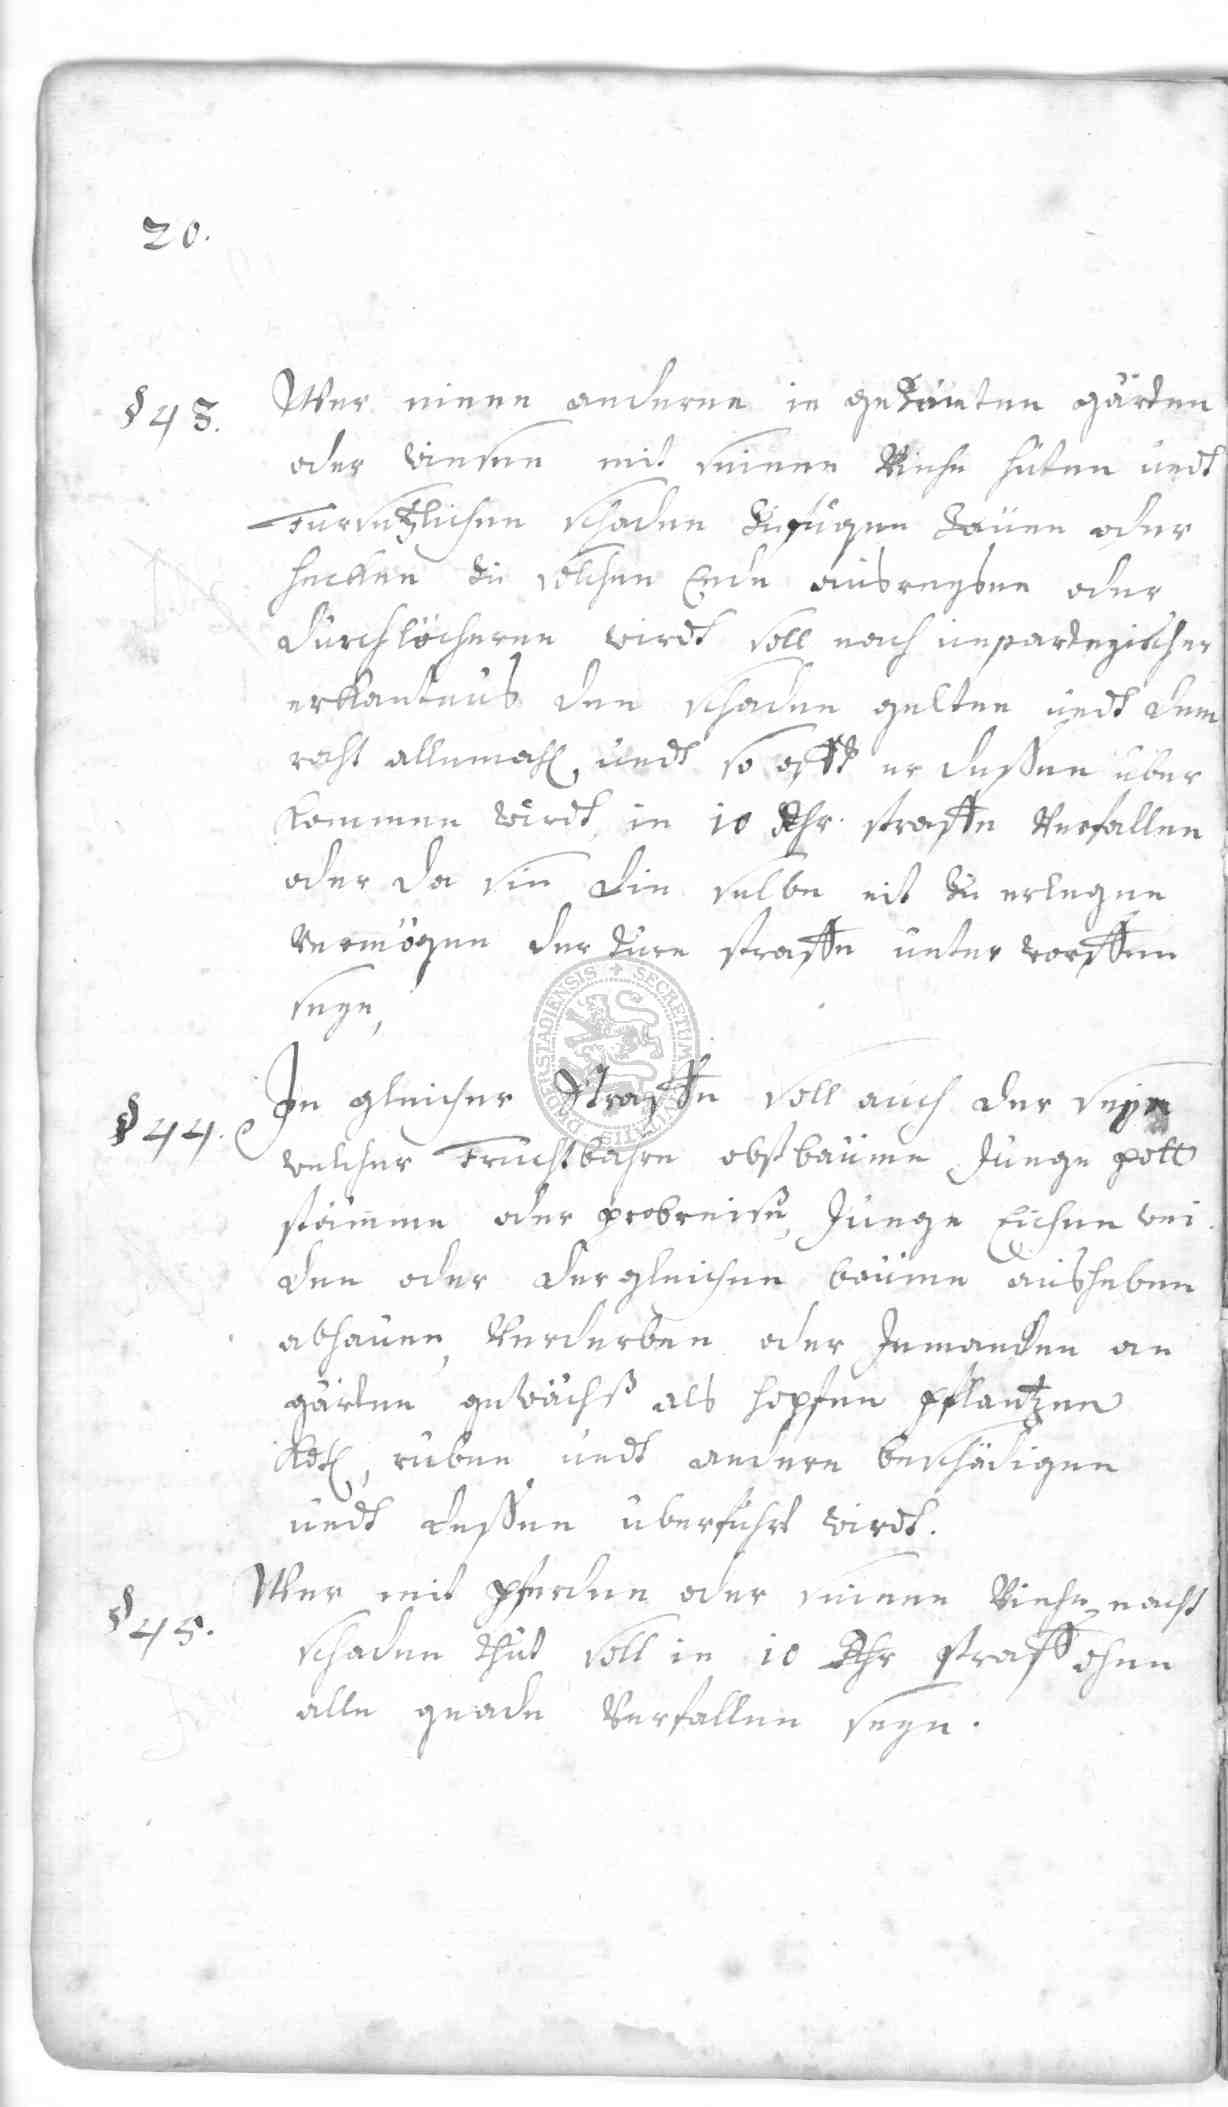 20.
§ 43. Wer einen anderen in gezäuten gärten
oder wiesen mit seinen Viehe hüten undt
fursetzlichen schaden zufügen zäune oder
hecken zu solchen Ende ausreysen oder
durchlöcheren wirdt soll nach unparteyischer
erkantnus den schaden gelten undt dem
raht allemahl, undt so offt er deßen über
kommen wirdt, in 10 thr. straffe Verfallen
oder da sie die selbe nit zu erlegen
Vermögen der türe straffe unter worffen
seyn,
§ 44. In gleicher Straffe soll auch der seyn
welcher Fruchtbahre obstbäume Junge pott
stämme oder probreise, Junge Eichen wei
den oder dergleichen bäume ausheben
abhauen, Verderben oder Jemanden an
gärten gewächß als hopfen pflantzen
rüben undt andere beschädigen
undt deßen uberführt wirdt.
§ 45. Wer mit pferden oder seinen Viehe nacht
schaden thut soll in 10 thr straff ohne
alle gnade Verfallen seyn.
SECRETUM CIVITATIS DUDERSTADIENSIS